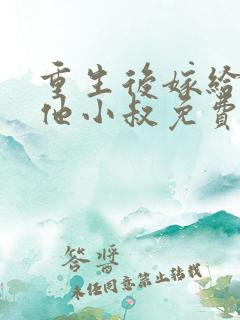 重生後嫁給
他小叔免費
答醬
未任同意禁止轉載